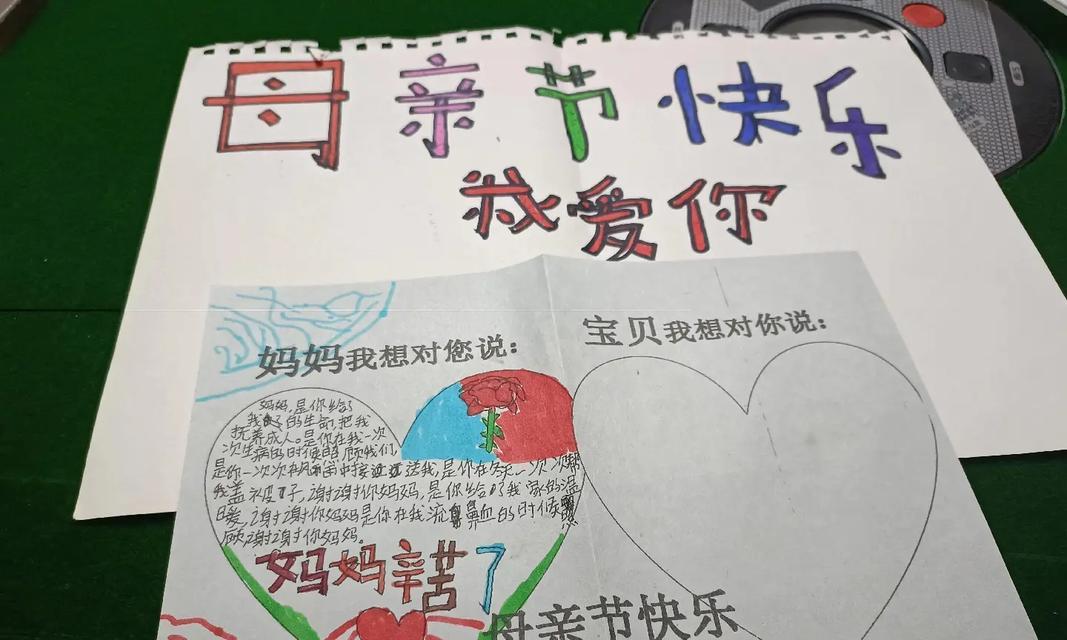 母亲节快乐
我爱你
妈妈我想对您说：
宝贝我想对你说：
妈妈，是你给了
我的生命，把我
抚养成人。是你在我一次
次生病的时候照顾我们，
是你一次次在风雨中接送我，是你在冬天一次次帮
我盖被子，谢谢你妈妈，是你给了我家的温
暖，谢谢你妈妈是你在我流鼻血的时候照
顾，谢谢你妈妈。
妈妈辛苦了
母亲节快乐